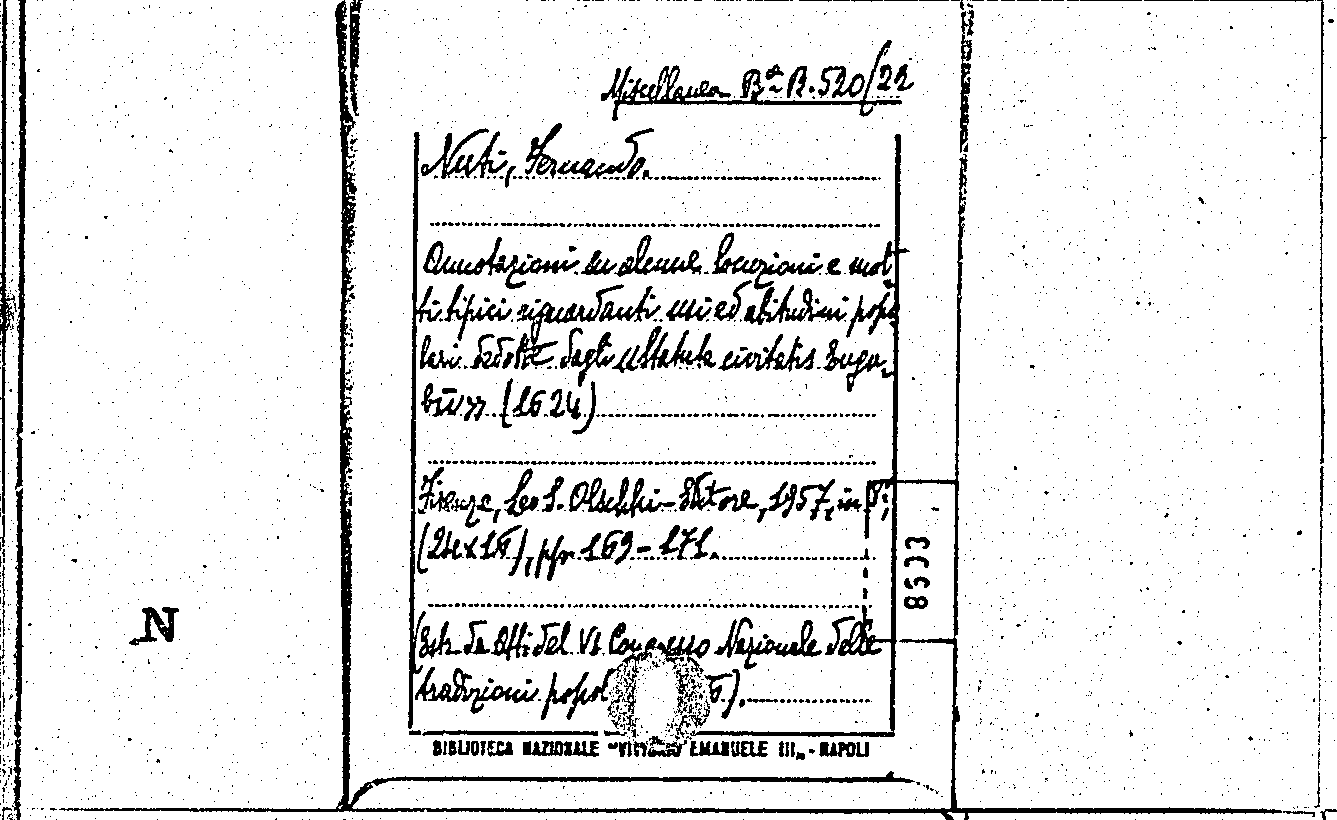 Miscellanea Bª B. 520/22
Nuti, Fernando.
Annotazioni su alcune locuzioni e mot
ti tipici riguardanti usi ed abitudini popo
lari dedotte dagli "Statuta civitatis Eugu-
bii" (1624)
Firenze, Leo S. Olschki-Editore, 1957, in 8°;
(24x16), pp. 169-171.
(Estr. da Atti del VI Congresso Nazionale delle
tradizioni popol
BIBLIOTECA NAZIONALE "VITTORIO EMANUELE III„ - NAPOLI
8603
N